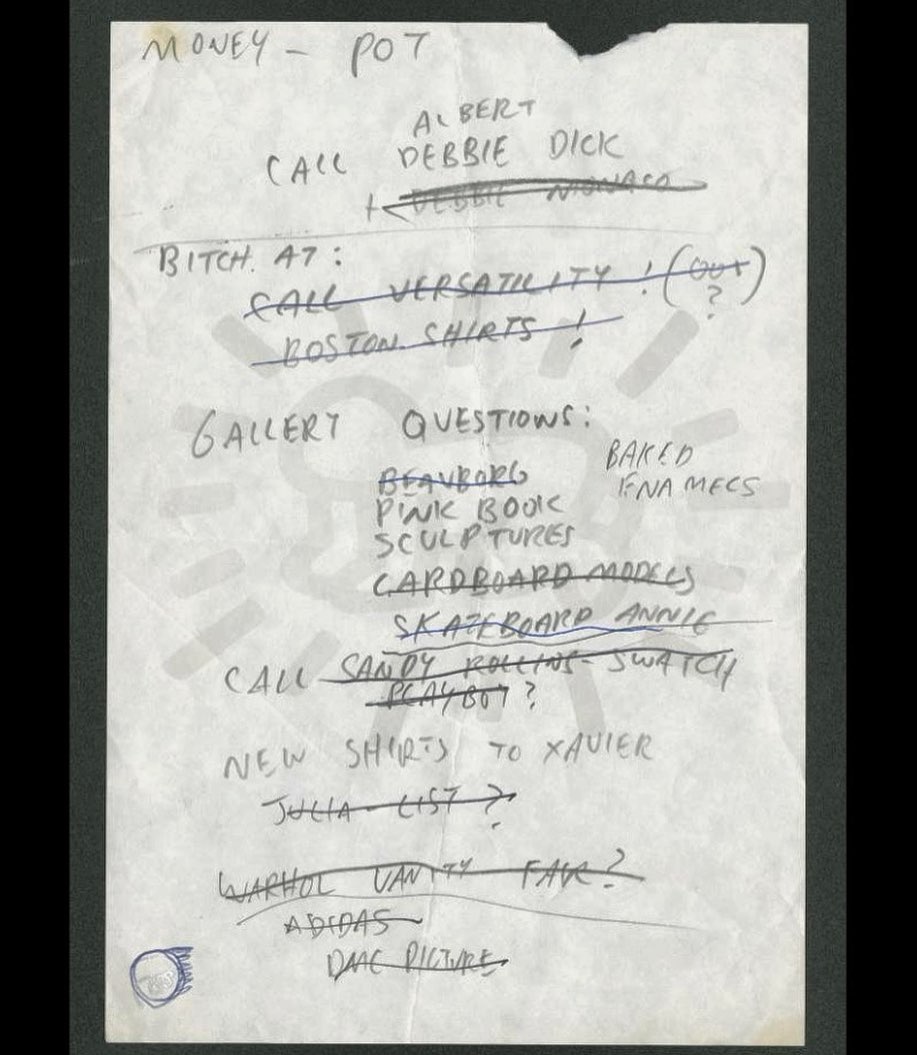 MONEY - POT
ALBERT
CALL DEBBIE DICK
+ DEBBIE MONACO
BITCH. AT:
CALL VERSATILITY ! (OUT)
?
BOSTON SHIRTS !
GALLERY QUESTIONS:
BAKED
ENAMELS
BEAUBORG
PINK BOOK
SCULPTURES
CARDBOARD MODELS
SKATEBOARD ANNIE
CALL SANDY ROLLINS - SWATCH
PLAYBOY ?
NEW SHIRTS TO XAVIER
JULIA - LIST ?
WARHOL VANITY FAIR ?
ADIDAS
PICTURE